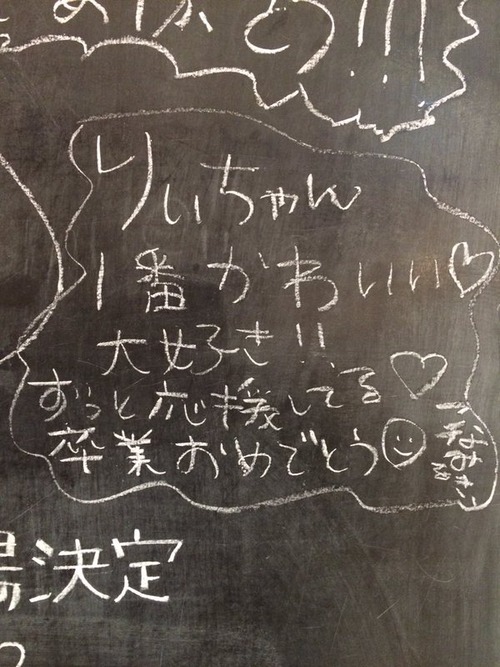 めがとう!!!
りぃちゃん
1番かわいい♡
大好き!!
ずっと応援してる♡
卒業おめでとう☺
場決定